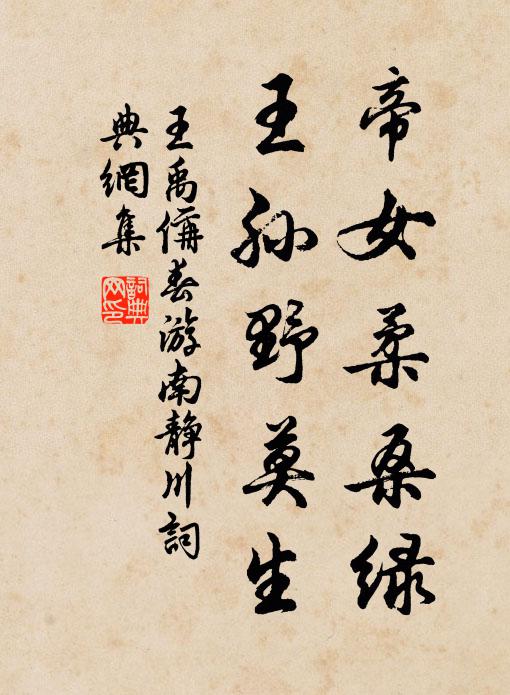 帝女柔桑绿
王孙野莫生
王禹偁春游南静川詞
典網集
詞典网印